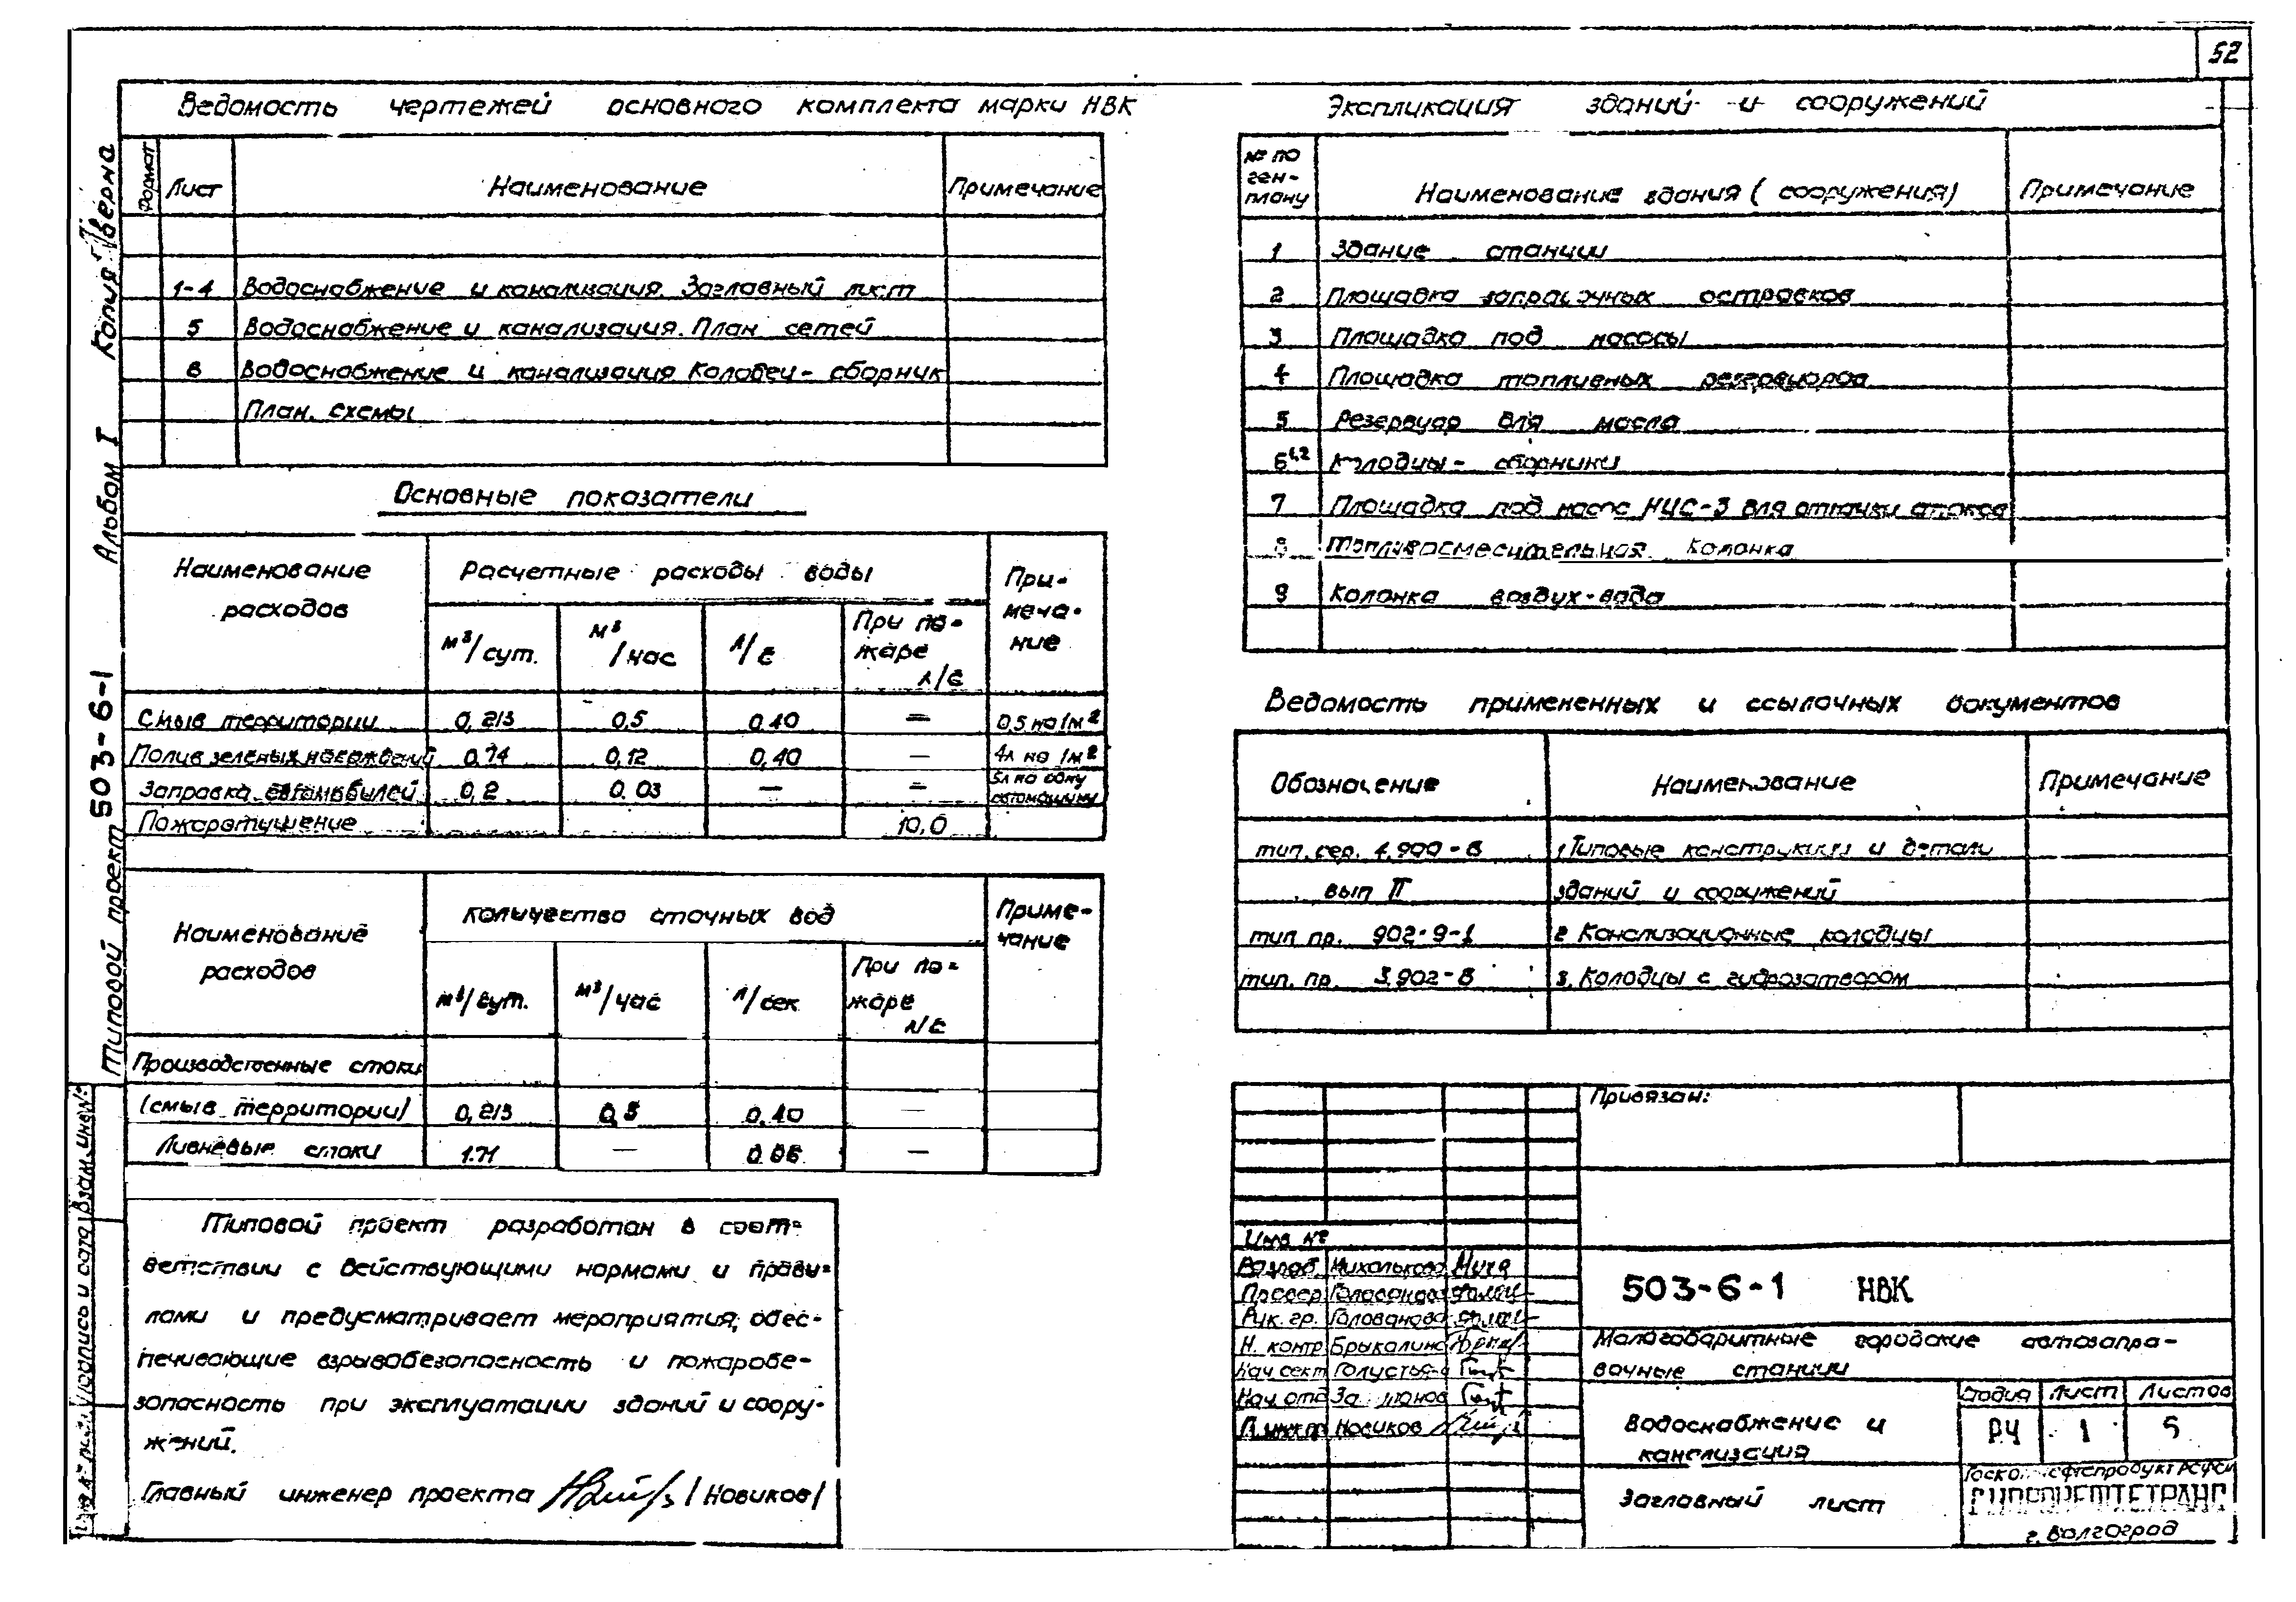 52
Ведомость чертежей основного комплекта марки НВК
Формат Лист Наименование Примечание
1-4 Водоснабжение и канализация. Заглавный лист
5 Водоснабжение и канализация. План сетей
6 Водоснабжение и канализация Колодец-сборник
План, схемы
Основные показатели
Наименование расходов
Расчетные расходы воды
Примеча-
ние
м³/сут.
м³/час
л/с
При по-
жаре
л/с
Смыв территории 0,213 0,5 0,40 — 0,5 на 1м²
Полив зеленых насаждений 0,74 0,12 0,40 — 4л на 1м²
Заправка автомобилей 0,2 0,03 — — 5л на одну
автомашину
Пожаротушение 10,0
Наименование расходов
Количество сточных вод
Приме-
чание
м³/сут.
м³/час
л/сек
При по-
жаре
л/с
Производственные стоки
(смыв территории) 0,213 0,5 0,40 —
Ливневые стоки 1.71 — 0.06 —
Типовой проект разработан в соот-
ветствии с действующими нормами и прави-
лами и предусматривает мероприятия, обес-
печивающие взрывобезопасность и пожаробе-
зопасность при эксплуатации зданий и соору-
жений.
Главный инженер проекта /Новиков/
Экспликация зданий и сооружений
№ по
ген-
плану
Наименование здания (сооружения) Примечание
1 Здание станции
2 Площадка заправочных островков
3 Площадка под насосы
4 Площадка топливных резервуаров
5 Резервуар для масла
6¹,² Колодцы-сборники
7 Площадка под насос НЦС-3 для откачки стоков
8 Топливосмесительная колонка
9 Колонка воздух-вода
Ведомость примененных и ссылочных документов
Обозначение Наименование Примечание
тип. сер. 4.900-8 1. Типовые конструкции и детали
вып II зданий и сооружений
тип пр. 902-9-1 2 Канализационные колодцы
тип. пр. 3.902-8 3. Колодцы с гидрозатвором
Привязан:
Инв №
Разраб. Михалькова
Провер Голованова
Рук. гр. Голованова
Н. контр Брыкалина
Нач сект
Нач отд
Новиков
503-6-1 НВК
Малогабаритные городские автозапра-
вочные станции
Водоснабжение и
канализация
Стадия Лист Листов
РЧ 1 5
Заглавный лист
Госкомнефтепродукт РСФСР
ГИПРОНЕФТЕТРАНС
г. Волгоград
Копия Верна
Альбом I
Типовой проект 503-6-1
Взам. инв №
Подпись и дата
Инв № подл